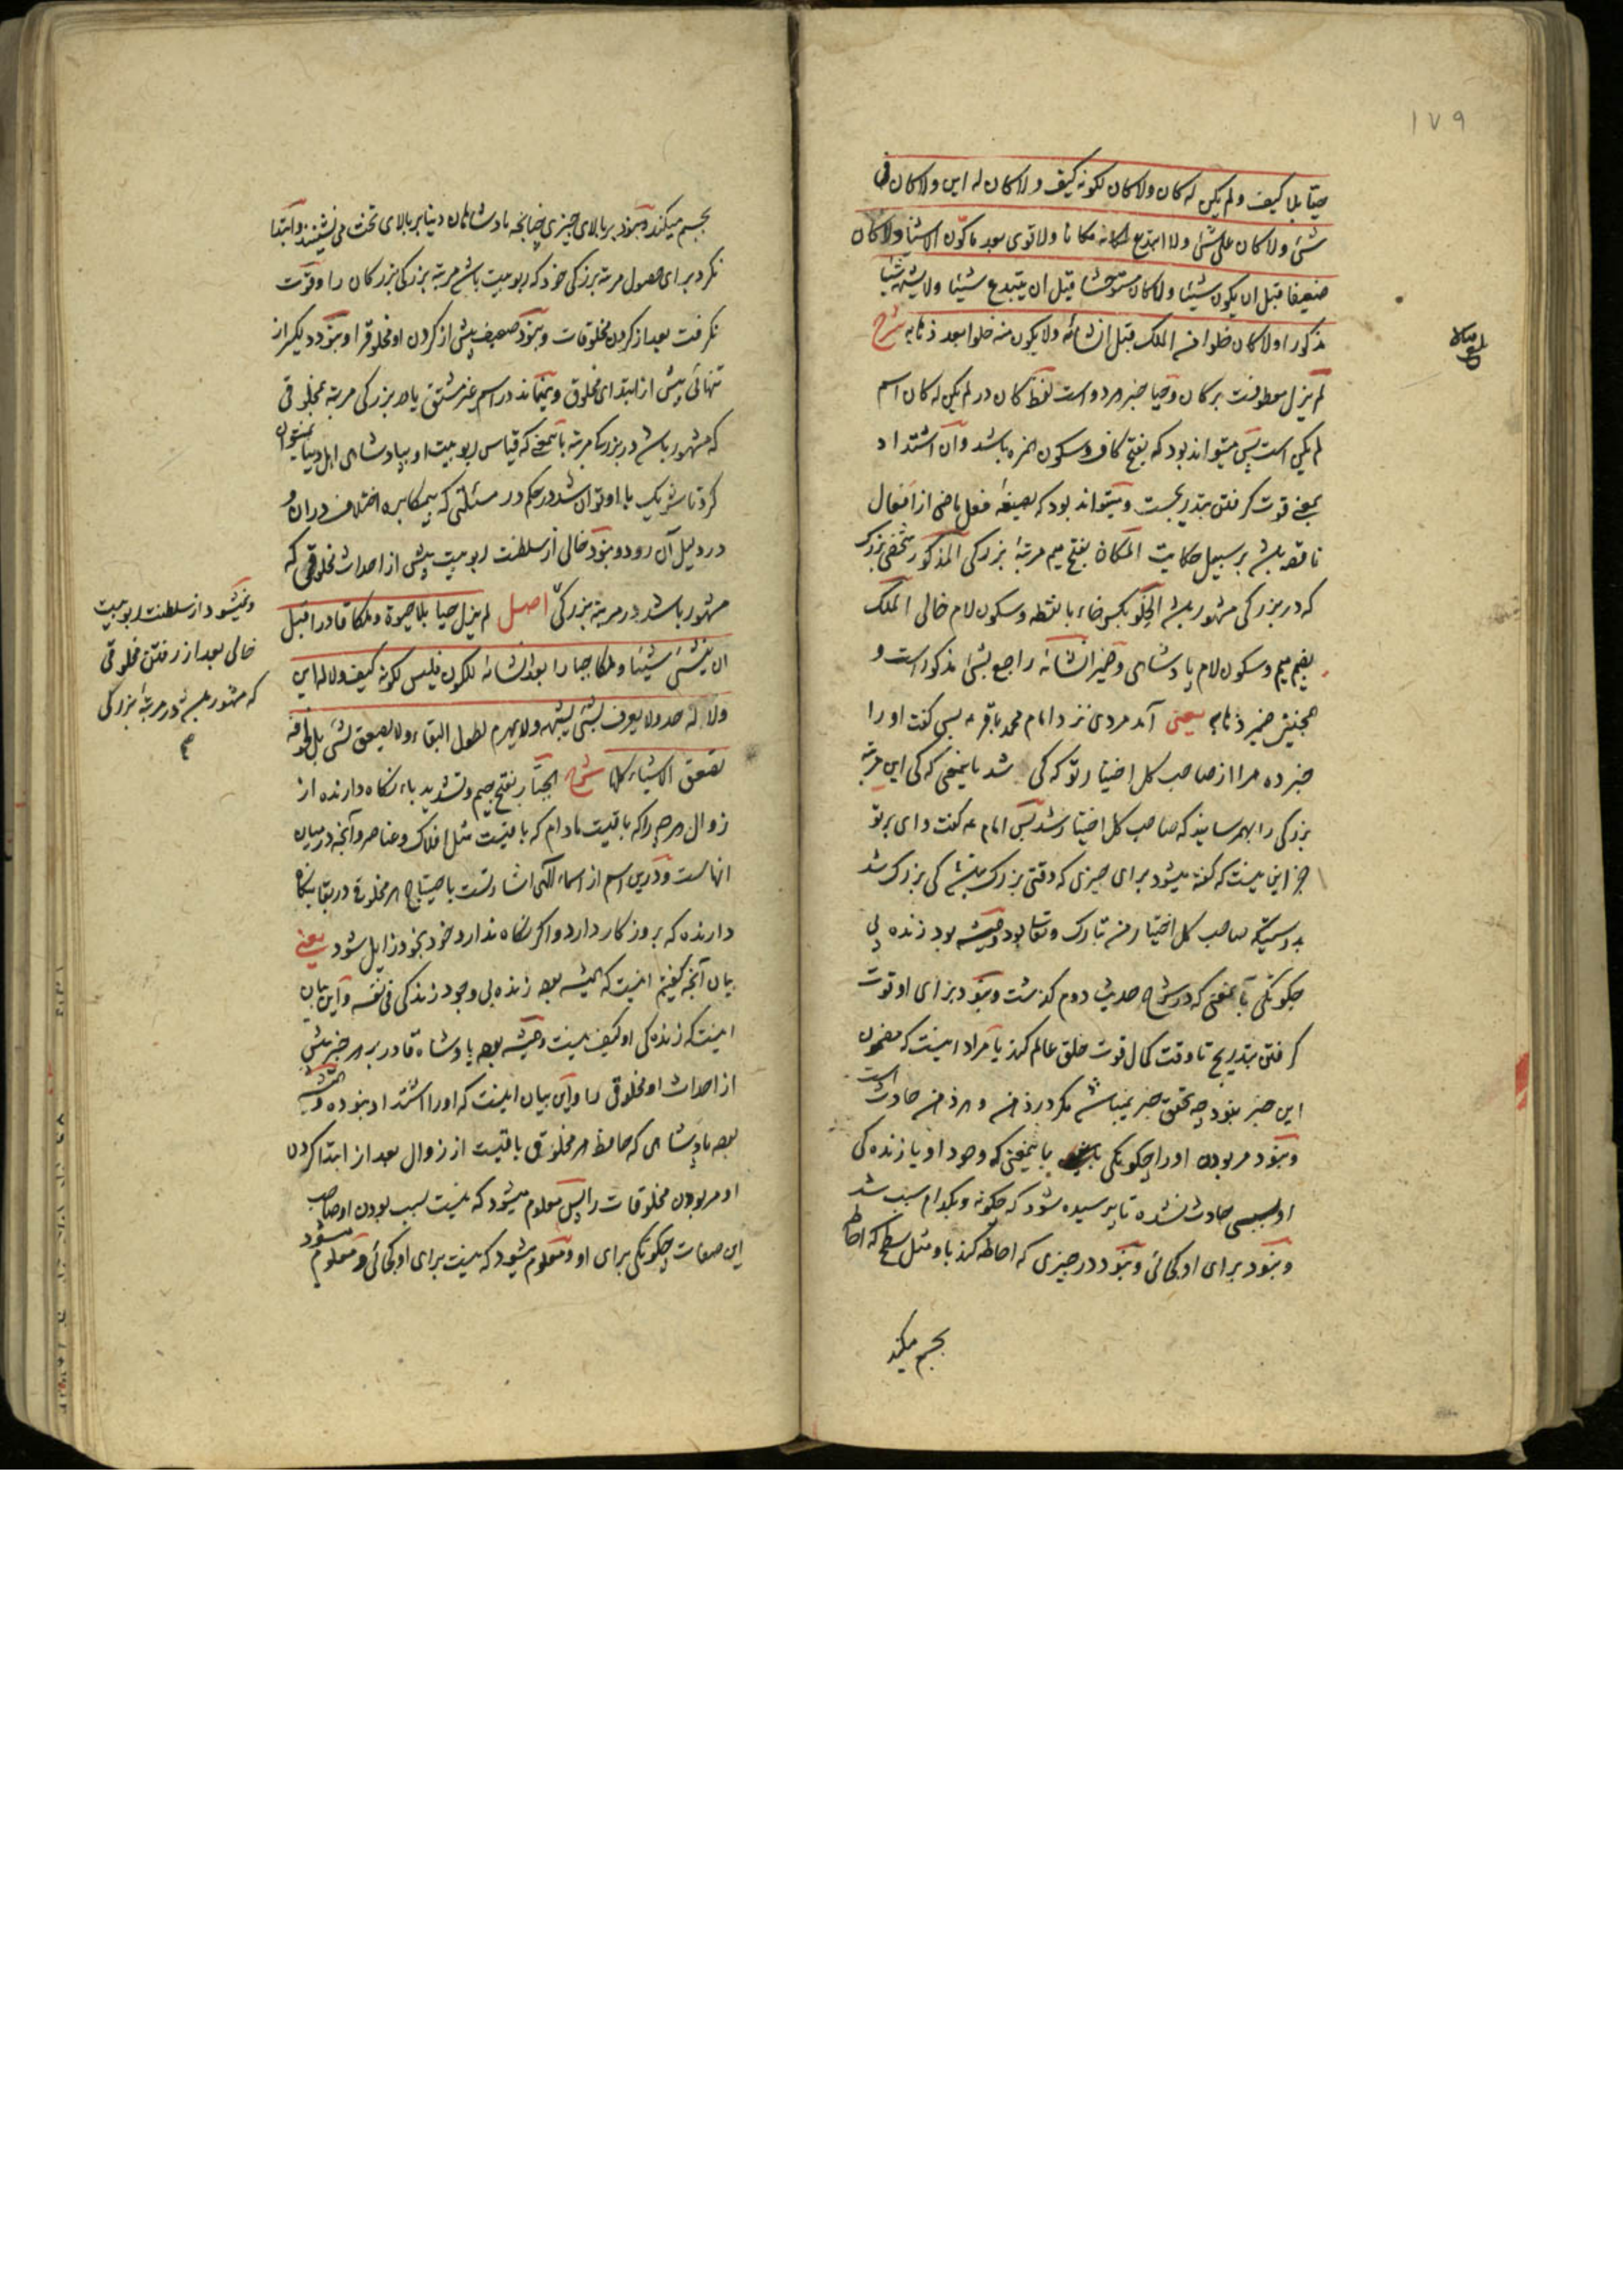 ١٧٩
حیّا بلا کیف و لم یکن له کان ولا کان لکونه کیف ولا کان له این ولا کان فی
شئ ولا کان علی شئ ولا ابتدع لمکانه مکانا ولا قوی بعد ما کوّن الاشیا ولا کان
ضعیفا قبل ان یکون شیئا ولا کان مستوحشا قبل ان یبتدع شیئا ولا یشبه شیئا
مذکورا ولا کان خلوا من الملک قبل انشائه ولا یکون منه خلوا بعد ذهابه شرح
لم یزل معطوفست بر کان و حیا خبر هر دو است لفظ کان در لم یکن له کان اسم
لم یکن است پس میتواند بود که بفتح کاف و سکون همزه باشد و آن اشتداد
بمعنی قوت گرفتن بتدریجست و میتواند بود که بصیغه فعل ماضی از افعال
ناقصه باشد بر سبیل حکایت المکان بفتح میم مرتبهٔ بزرگی المذکور شخص بزرگ
که در بزرگی مشهور باشد الخلو بکسر خاء بانقطه و سکون لام خالی الملک
بضم میم و سکون لام پادشاهی و ضمیر انشائه راجع بشئ مذکور است و
همچنین ضمیر ذهابه یعنی آمد مردی نزد امام محمد باقر ع پس گفت او را
خبر ده مرا از صاحب کل اختیار تو که کی شد باینمعنی که کی این مرتبه
بزرگی را بهمرسانید که صاحب کل اختیار شد پس امام ع گفت وای بر تو
جز این نیست که گفته میشود برای چیزی که وقتی بزرگ نباشد کی بزرگ شد
بدرستیکه صاحب کل اختیار من تبارک و تعالی بود و همیشه بود زنده بی
چگونگی بآنمعنی که در شرح حدیث دوم گذشت و نبود برای او قوت
گرفتن بتدریج تا وقت کمال قوت خلق عالم کند یا مراد اینست که مضمون
این خبر نبود چه تحقق خبر نمیباشد مگر در ذهن و هر ذهن حادث است
و نبود مر بودن او را چگونگی باینمعنی که وجود او یا زنده کی
او بسببی حادث نشده تا پرسیده شود که چگونه و بکدام سبب شد
و نبود برای او کجائی و نبود در چیزی که احاطه کند باو مثل سطح که احاطه
بجسم میکند
بجسم میکند و نبود بر بالای چیزی چنانچه پادشاهان دنیا بر بالای تخت می نشینند و ابتدا
نکرد برای حصول مرتبه بزرگی خود که ربوبیت باشد مرتبه بزرگی بزرگان را و قوت
نگرفت بعد از کردن مخلوقات و نبود ضعیف پیش از کردن او مخلوقرا و نبود دلگیر از
تنهائی پیش از ابتدای مخلوق و نمیماند در اسم غیر مشتق یا در بزرگی مرتبه بمخلوقی
که مشهور باشد در بزرگی مرتبه باینمعنی که قیاس ربوبیت او بپادشاهی اهل دنیا نمیتوان
کرد تا شریک با او توان شد در حکم در مسئلتی که بیمکابره اختلاف در آن و
در دلیل آن رود و نبود خالی از سلطنت ربوبیت پیش از احداث مخلوقی که
مشهور باشد در مرتبه بزرگی اصل لم یزل حیا بلا حیوة و ملکا قادرا قبل
ان ینشئ شیئا و ملکا جبارا بعد انشائه للکون فلیس لکونه کیف ولا له این
ولا له حد ولا یعرف بشئ یشبهه ولا یهرم لطول البقاء ولا یصعق لشئ بل لخوفه
تصعق الاشیاء کلها شرح الجبّار بفتح جیم و تشدید باء نگاه دارنده از
زوال هر چه را که باقیست مادام که باقیست مثل افلاک و عناصر و آنچه در میان
آنهاست و درین اسم از اسماء الهی اشارتست باحتیاج هر مخلوق در بقا بنگاه
دارنده که بروز کار دارد و اگر نگاه ندارد خود بخود زایل شود یعنی
بیان آنچه گفتیم اینست که همیشه بود زنده بی وجود زندگی فی نفسه و این بیان
اینست که زنده کی او کیف نیست و همیشه بود پادشاه قادر بر هر چیز پیش
از احداث او مخلوقی را و این بیان اینست که او را اشتداد نبوده و همیشه
بود پادشاهی که حافظ هر مخلوق باقیست از زوال بعد از ابتدا کردن
او مر بودن مخلوقات را پس معلوم میشود که نیست بسبب بودن او صاحب
این صفات چگونگی برای او و معلوم میشود که نیست برای او کجائی و معلوم میشود
و نمیشود از سلطنت ربوبیت
خالی بعد از رفتن مخلوقی
که مشهور باشد در مرتبه بزرگی